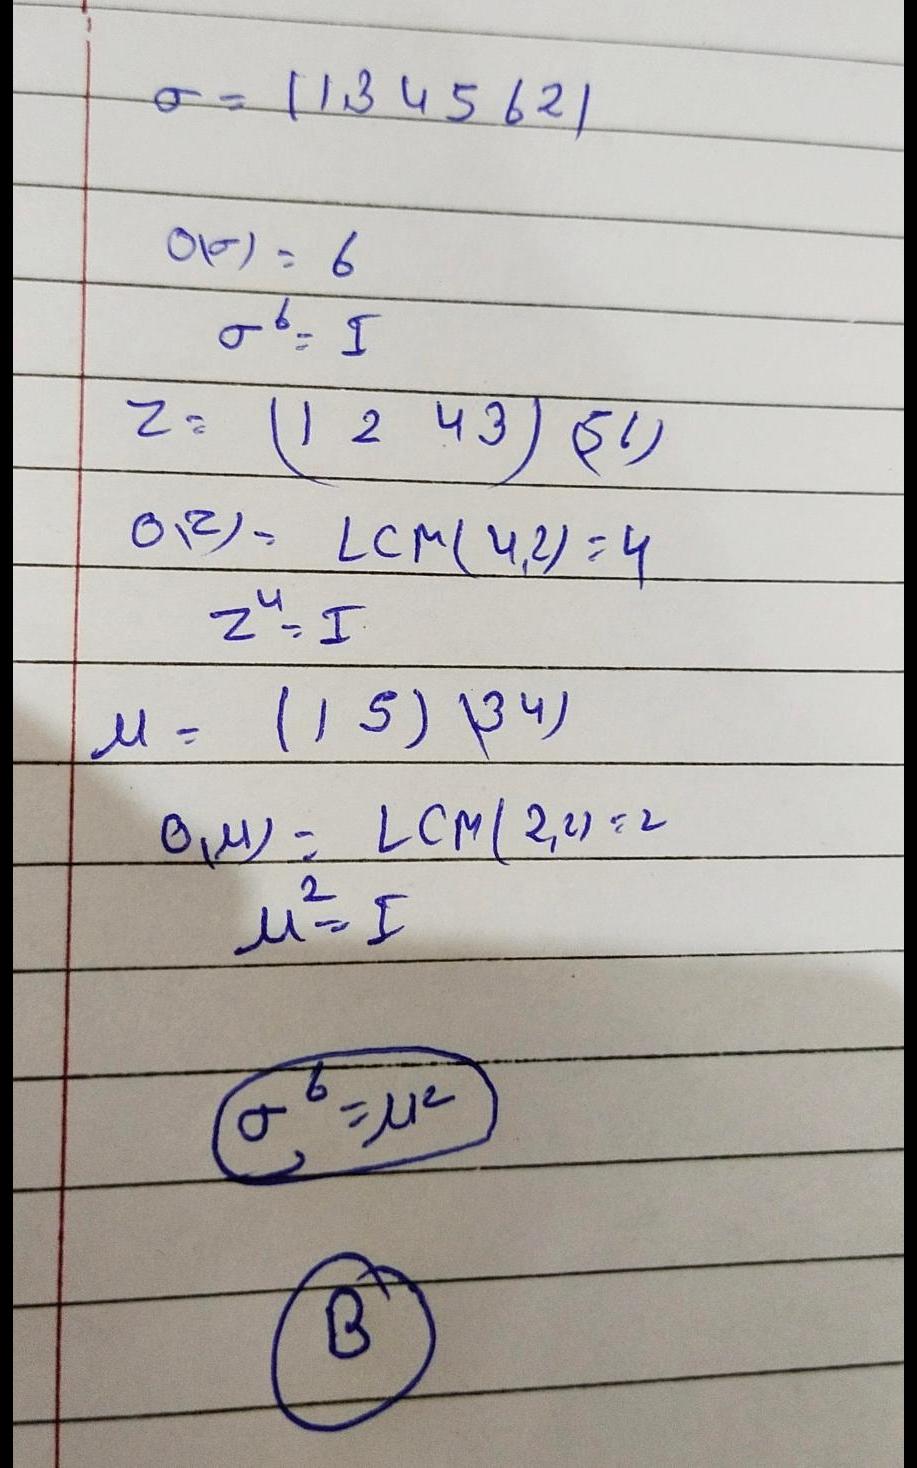 σ = (1 3 4 5 6 2)
O(σ) = 6
σ⁶ = I
Z = (1 2 4 3) (5 6)
O(Z) = LCM(4,2) = 4
Z⁴ = I
μ = (1 5) (3 4)
O(μ) = LCM(2,2) = 2
μ² = I
σ⁶ = μ²
B